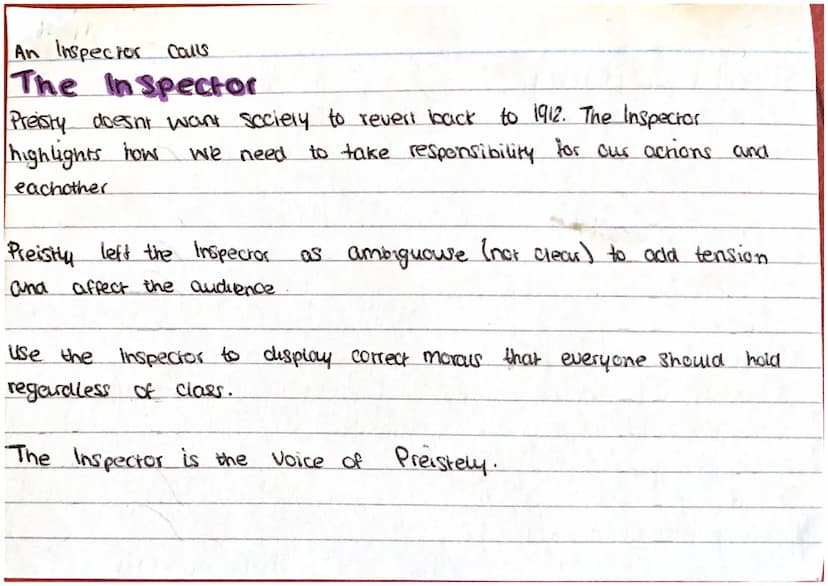 An Inspector Calls
The Inspector
Preisty doesnt want society to revert back to 1912. The Inspector
highlights how we need to take responsibility for our actions and
eachother
Preistly left the Inspector as ambiguouse (not clear) to add tension
and affect the audience.
Use the Inspector to display correct morals that everyone should hold
regardless of class.
The Inspector is the voice of Preistely.